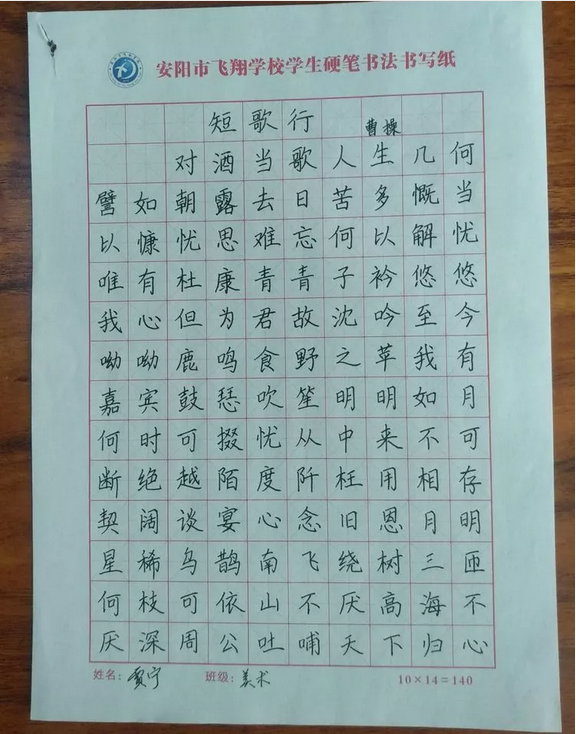 安阳市飞翔学校学生硬笔书法书写纸
短歌行 曹操
对酒当歌人生几何
譬如朝露去日苦多慨当
以慷忧思难忘何以解忧
唯有杜康青青子衿悠悠
我心但为君故沈吟至今
呦呦鹿鸣食野之苹我有
嘉宾鼓瑟吹笙明明如月
何时可掇忧从中来不可
断绝越陌度阡枉用相存
契阔谈宴心念旧恩月明
星稀乌鹊南飞绕树三匝
何枝可依山不厌高海不
厌深周公吐哺天下归心
姓名：贾宁 班级：美术 10×14=140